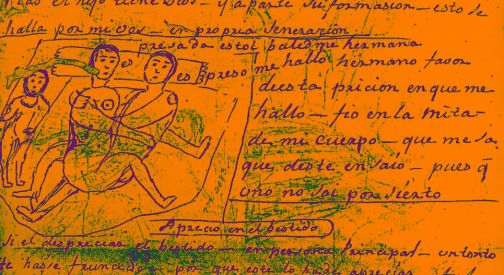 mas el hijo tiene Dios – y aparte su formasion – esto se
halla por mi vos – en propria jenerazion
presa da estoi baledme hermana
es preso me hallo hermano favor
es
de esta pricion en que me
hallo – fio en la mita
de mi cuerpo – que me sa
que deste en saio – pues q̃
uno no soi por siento
Aprecio en el bestido
Si el despreciar el bestido – en persona principal – un tonto
te hasse
por que este lo hase apreciar